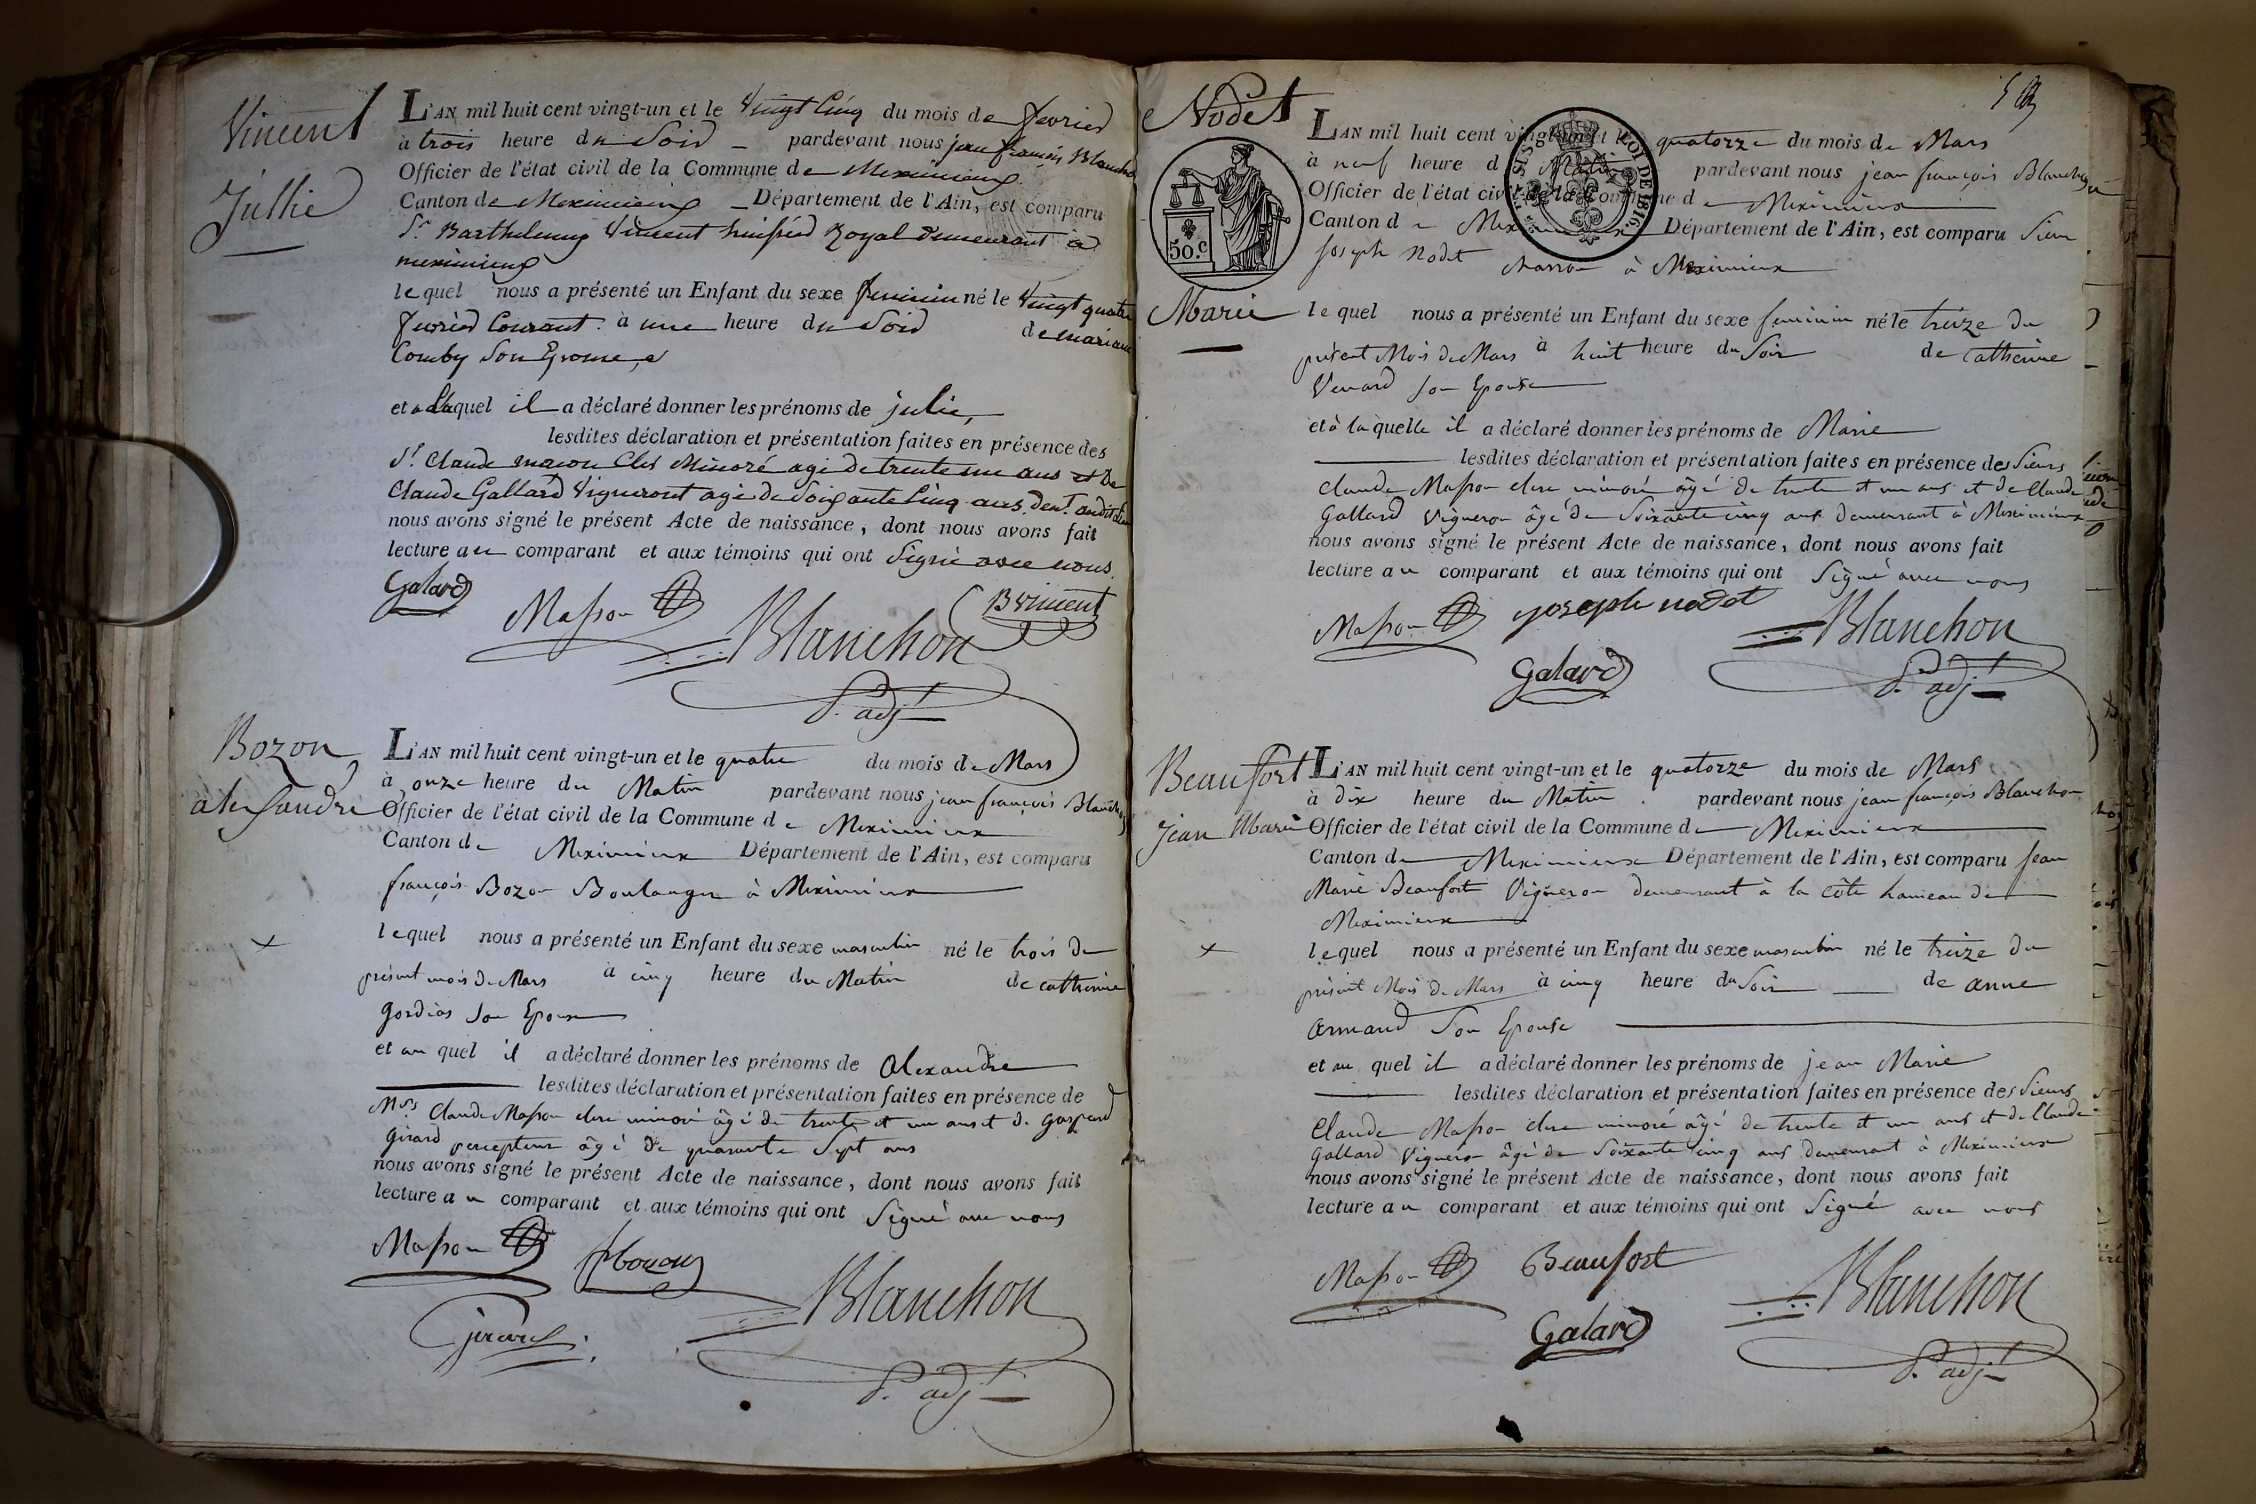 Vincent
Jullie
L'AN mil huit cent vingt-un et le Vingt Cinq du mois de fevrier
à trois heure du Soir pardevant nous jean françois Blanchon
Officier de l'état civil de la Commune de Meximieux
Canton de Meximieux Département de l'Ain, est comparu
Sr. Barthelemy Vincent huissier Royal demeurant à
meximieux
lequel nous a présenté un Enfant du sexe feminin né le Vingt quatre
fevrier Courant à une heure du Soir de mariane
Comby Son Epouse
et a laquel il a déclaré donner les prénoms de julie,
lesdites déclaration et présentation faites en présence des
Sr. Claude Clet Minoré agé de trente un ans et De
Claude Gallard Vigneront agé de Soixante Cinq ans
nous avons signé le présent Acte de naissance, dont nous avons fait
lecture au comparant et aux témoins qui ont Signé avec nous.
Galard
Masson
B Vincent
Blanchon
adjt
Bozon
alessandre
L'AN mil huit cent vingt-un et le quatre du mois de Mars
à onze heure du Matin pardevant nous jean françois Blanchon
Officier de l'état civil de la Commune de Meximieux
Canton de Meximieux Département de l'Ain, est comparu
françois Bozon Boulanger à Meximieux
lequel nous a présenté un Enfant du sexe masculin né le trois du
présent mois de Mars à cinq heure du Matin de catherine
Gordias Son Epouse
et au quel il a déclaré donner les prénoms de Alexandre
lesdites déclaration et présentation faites en présence de
Mrs Claude Masson clerc minoré âgé de trente et un ans et de Gaspard
Girard percepteur âgé de quarante Sept ans
nous avons signé le présent Acte de naissance, dont nous avons fait
lecture au comparant et aux témoins qui ont Signé avec nous
Masson
f bozon
Girard
Blanchon
adjt
Nodet
Marie
50.C
ROI DE
L'AN mil huit cent vingt-un et le quatorze du mois de Mars
à neuf heure d Matin pardevant nous jean françois Blanchon
Officier de l'état civil de la Commune de Meximieux
Canton de Meximieux Département de l'Ain, est comparu Sieur
joseph Nodet charron à Meximieux
lequel nous a présenté un Enfant du sexe feminin né le treize du
présent Mois de Mars à huit heure du Soir de Catherine
Venard son Epouse
et à laquelle il a déclaré donner les prénoms de Marie
lesdites déclaration et présentation faites en présence des Sieurs
Claude Masson clerc minoré âgé de trente et un ans et de Claude
Gallard Vigneron âgé de Soixante cinq ans demeurant à Meximieux
nous avons signé le présent Acte de naissance, dont nous avons fait
lecture au comparant et aux témoins qui ont Signé avec nous
Masson
joseph nodet
Blanchon
Galard
adjt
Beaufort
Jean Marie
L'AN mil huit cent vingt-un et le quatorze du mois de Mars
à dix heure du Matin pardevant nous jean françois Blanchon
Officier de l'état civil de la Commune de Meximieux
Canton de Meximieux Département de l'Ain, est comparu Jean
Marie Beaufort Vigneron demeurant à la côte hameau de
Meximieux
lequel nous a présenté un Enfant du sexe masculin né le treize du
présent Mois de Mars à cinq heure du Soir de anne
armand Son Epouse
et au quel il a déclaré donner les prénoms de jean Marie
lesdites déclaration et présentation faites en présence des Sieurs
Claude Masson clerc minoré âgé de trente et un ans et de Claude
Gallard Vigneron âgé de Soixante cinq ans demeurant à Meximieux
nous avons signé le présent Acte de naissance, dont nous avons fait
lecture au comparant et aux témoins qui ont Signé avec nous
Masson
Beaufort
Blanchon
Galard
adjt